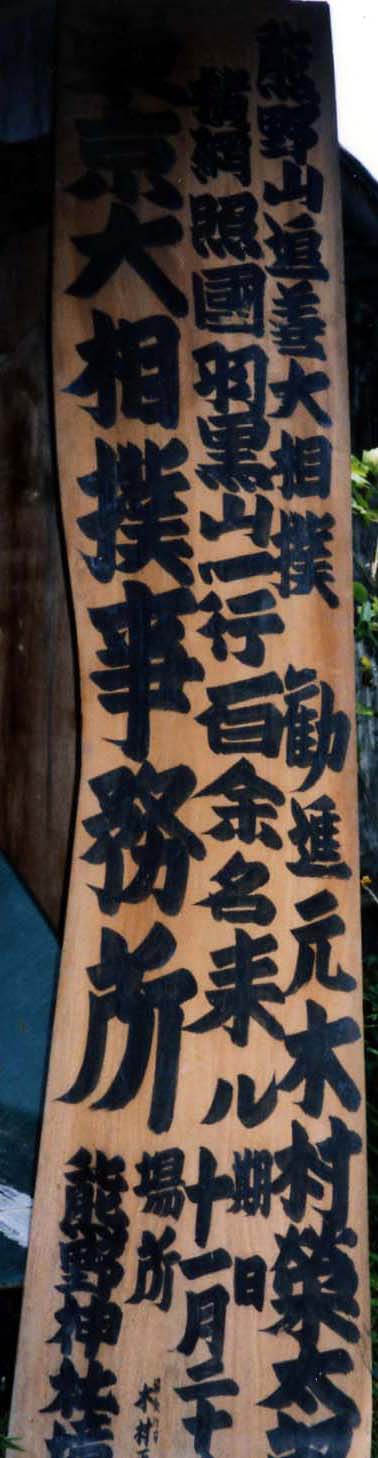 熊野山追善大相撲 勧進元木村榮太郎
横綱照國羽黒山一行百余名来ル 期日十一月二十
東京大相撲事務所 場所熊野神社境
木村